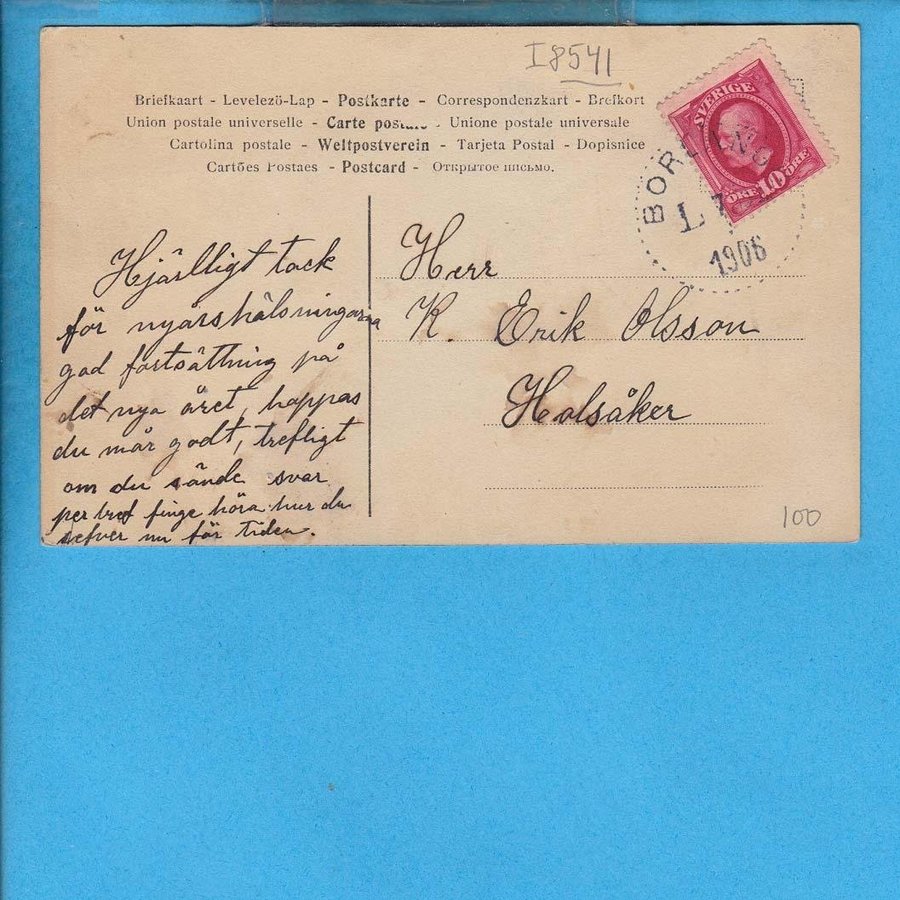 I 8541
Briefkaart - Levelezö-Lap - Postkarte - Correspondenzkart - Brefkort
Union postale universelle - Carte postale - Unione postale universale
Cartolina postale - Weltpostverein - Tarjeta Postal - Dopisnice
Cartões Postaes - Postcard - Открытое письмо.
SVERIGE
10
ÖRE ÖRE
L 7
1906
Hjärlligt tack
för nyårshälsningarna
god fortsättning på
det nya året, hoppas
du mår godt, trefligt
om du sände svar
per bref finge höra hur du
lefver nu för tiden.
Herr
K. Erik Olsson
Holsåker
100